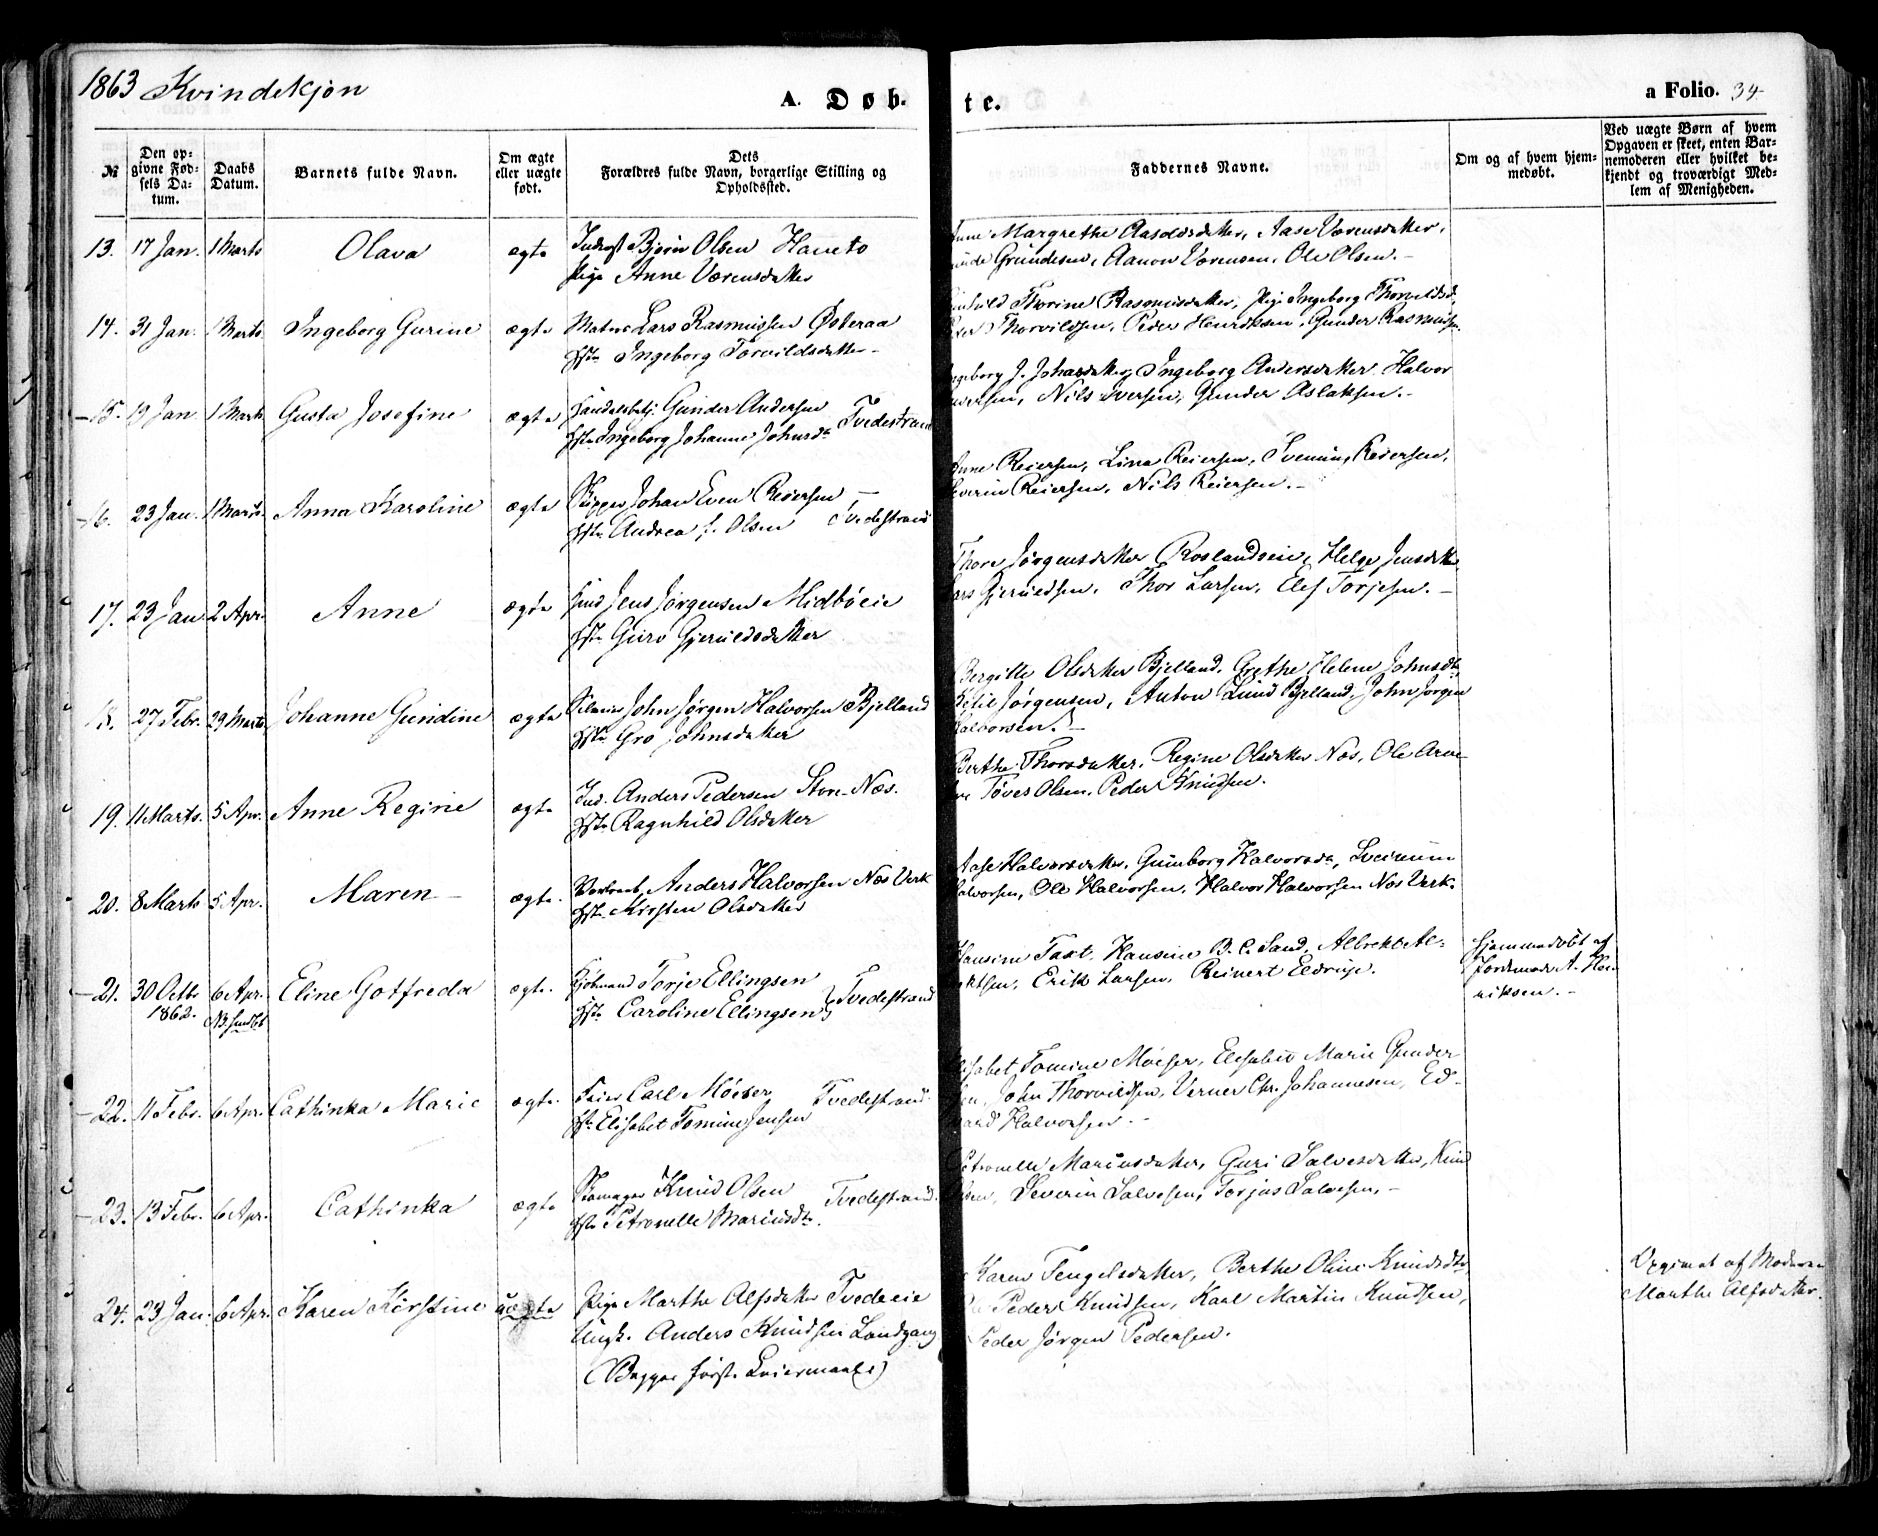 1863 Kvindekjøn
A. Døb-
te.
a Folio. 34
№
Den op-
givne Fød-
sels Da-
tum.
Daabs
Datum.
Barnets fulde Navn.
Om ægte
eller uægte
født.
Dets
Forældres fulde Navn, borgerlige Stilling og
Opholdssted.
Faddernes Navne.
Om og af hvem hjem-
medøbt.
Ved uægte Børn af hvem
Opgaven er skeet, enten Bar-
nemoderen eller hvilket be-
kjendt og troværdigt Med-
lem af Menigheden.
13. 17 Jan. 1 Marts Olava ægte Bjørn Olsen Haneto
Pige Anne Værensdatter
Margrethe Aasoldsdatter, Aase Værensdatter,
Gundesen, Aanon Værensen, Ole Olsen.-
14. 31 Jan. 1 Marts Ingeborg Gurine ægte Matros Lars Rasmussen Østeraa
Hst. Ingeborg Torvildsdatter-
Thorine Rasmusdatter, Pige Ingeborg Thorvildsd.
Thorvildsen, Peder Henriksen, Gunder Rasmussen
15. 19 Jan 1 Marts Gusta Josefine ægte Handelsbetj. Gunder Andersen
Hst. Ingeborg Johanne Johnsdr Tvedestrand
Ingeborg J. Johnsdatter, Ingeborg Andersdatter Halvor
Iversen, Nils Iversen, Gunder Aslaksen.-
16. 23 Jan. 1 Marts Anna Karoline ægte Skipper Johan Even Reiersen -
Hst. Andrea f. Olsen Tvedestrand
Anne Reiersen, Lina Reiersen, Reiersen,
Severin Reiersen, Nils Reiersen.-
17. 23 Jan 2 Apr. Anne ægte Jens Jørgensen Midbøeie
Hst. Guro Gjeruldsdatter
Thore Jørgensdatter Roslandseie, Helge Jensdatter
Lars Gjeruldsen, Thor Larsen, Elef Torjesen.-
18. 27 Febr. 29 Marts Johanne Gundine ægte John Jørgen Halvorsen Bjelland
Hst. Gro Johnsdatter
Bergitte Olsdatter Bjelland, Grethe Helene Johnsdtr,
Ketil Jørgensen, Anton Lund Bjelland, John Jørgen
Halvorsen.-
19. 11 Marts. 5 Apr. Anne Regine ægte Ind. Anders Pedersen Store-Næs.
Hst. Ragnhild Olsdatter
Berthe Thorsdatter, Regine Olsdatter Næs, Ole
Tøves Olsen, Peder Knudsen.
20. 8 Marts 5 Apr. Maren - ægte. Anders Halvorsen Næs Verk
Hst. Kirsten Olsdatter
Aase Halvorsdatter, Gunborg Halvorsdr,
Halvorsen, Ole Halvorsen, Halvor Halvorsen Næs Verk.
21. 30 Octbr 6 Apr. Eline Gotfreda ægte. Kjøbmand Torje Ellingsen
1862. Hst. Caroline Ellingsen } Tvedestrand
Hansine Taxt, Hansine B. C. Sand, Albrekt Al-
brektsen, Erik Larsen, Reinert Eldrup.
Hjemmedøbt af
Jordemoder A. Hen-
riksen.-
22. 11 Febr. 6 Apr. Cathinka Marie ægte. Carl Moeser Tvedestrand
Hst. Elisabet Tomine Jensen
Elisabet Tomine Moeser, Elisabet Marie Gunder
sen, John Thorvildsen, Verner Chr. Johannesen, Ed-
vard Halvorsen.-
23. 13 Febr. 6 Apr. Cathinka ægte Skomager Knud Olsen Tvedestrand.
Hst. Petronelle Mariusdtr.
Petronelle Mariusdatter, Guri Salvesdatter, Knud
Olsen, Severin Salvesen, Torjus Salvesen.-
24. 23 Jan. 6 Apr. Karen Kirstine uægte Pige Marthe Alfsdatter Tvedeeie
Ungk. Anders Knudsen Landgang
(Begges første Leiermaal)
Karen Tengelsdatter, Berthe Oline Knudsdtr,
Peder Knudsen, Karl Martin Knudsen,
Peder Jørgen Pedersen.
Opgivet af Moderen
Marthe Alfsdatter.